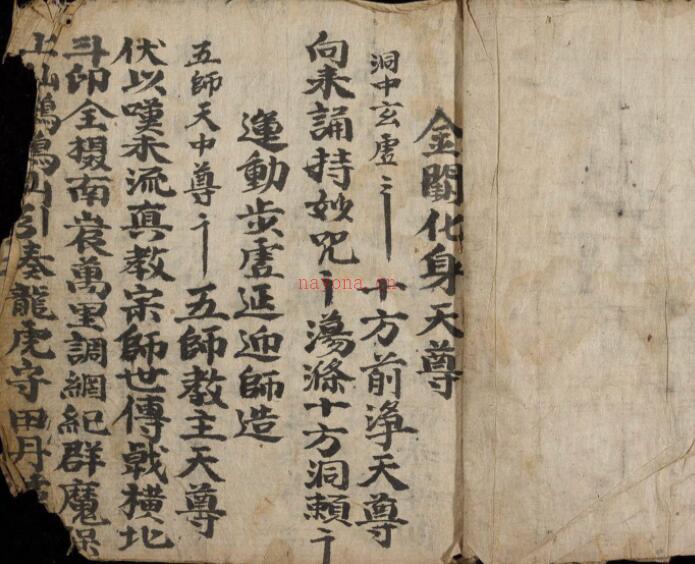 金闕化身天尊
洞中玄虛 十方前淨天尊
向來誦持妙咒 蕩滌十方洞賴
運動步虛延迎師造
五師天中尊 五師教主天尊
伏以嘆未流真教宗師世傳戟橫北
斗印全摄南袁萬里調綱紀群魔
上仙鶴鳴山引奏龍虎守田丹
nayona.cn